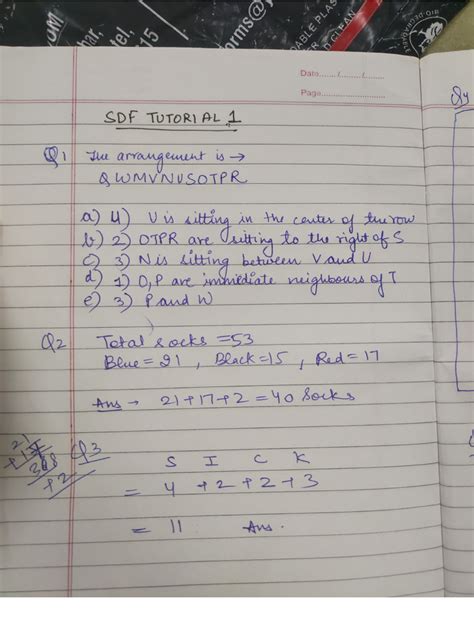 Date......./......../........
Page...............................
SDF TUTORIAL 1
Q1 The arrangement is →
QWMVNUSOTPR
a) 4) U is sitting in the center of the row
b) 2) OTPR are sitting to the right of S
c) 3) N is sitting between V and U
d) 1) O,P are immediate neighbours of T
e) 3) P and W
Q2 Total socks = 53
Blue = 21 , Black = 15 , Red = 17
Ans → 21+17+2 = 40 Socks
Q3
S I C K
= 4 +2+2+3
= 11 Ans.